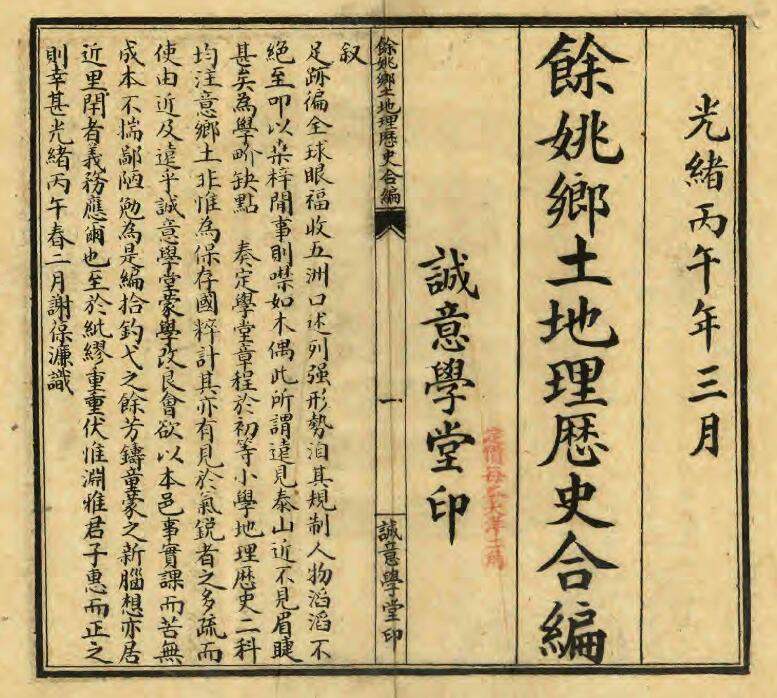 光緒丙午年三月
餘姚鄉土地理歷史合編
誠意學堂印
餘姚鄉土地理歷史合編
一
誠意學堂印
叙
足跡徧全球眼福收五洲口述列强形勢洎其規制人物滔滔不
絕至叩以桑梓聞事則噤如木偶此所謂遠見泰山近不見眉睫
甚矣為學界缺點 奏定學堂章程於初等小學地理歷史二科
均注意鄉土非惟為保存國粹計其亦有見於氣銳者之多疏而
使由近及遠乎誠意學堂蒙學改良會欲以本邑事實課而苦無
成本不揣鄙陋勉為是編拾釣弋之餘芳鑄童蒙之新腦想亦居
近里閈者義務應爾也至於紕繆重重伏惟淵雅君子惠而正之
則幸甚光緒丙午春二月謝葆濂識